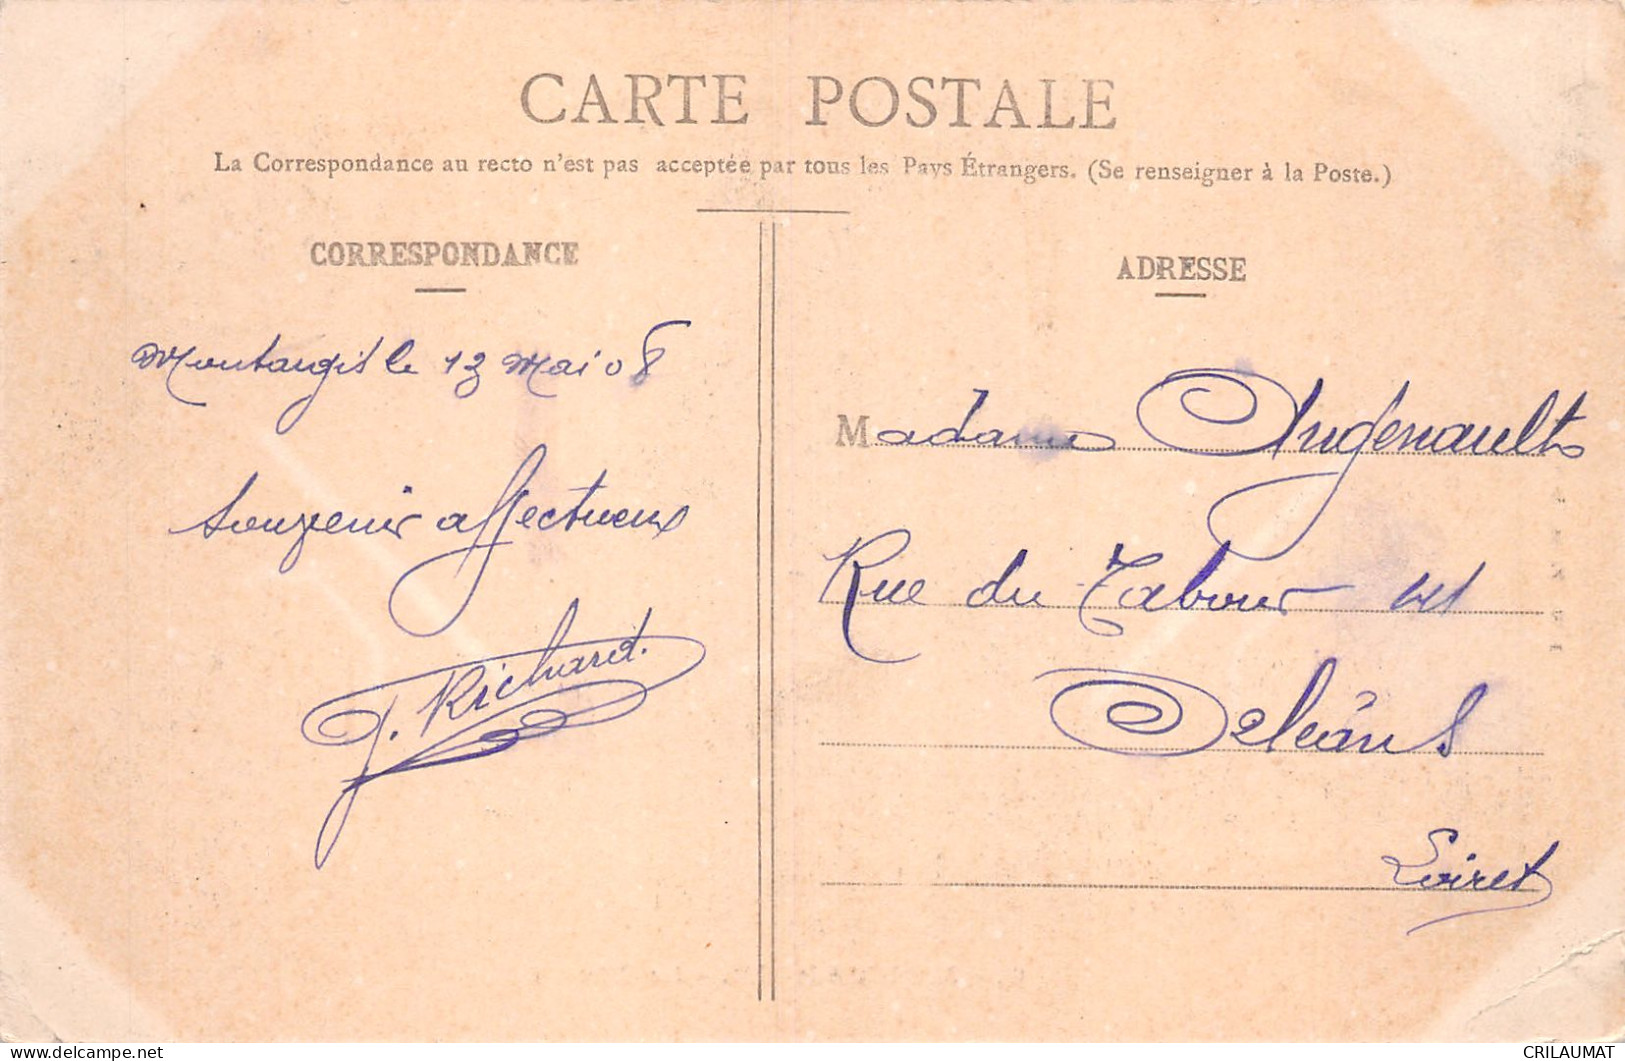 CARTE POSTALE
La Correspondance au recto n'est pas acceptée par tous les Pays Étrangers. (Se renseigner à la Poste.)
CORRESPONDANCE
Montargis le 13 Mai 08
Souvenir affectueux
J. Richard.
ADRESSE
Madame Angenault
Rue du Tabour
Orléans
Loiret
CRILAUMAT